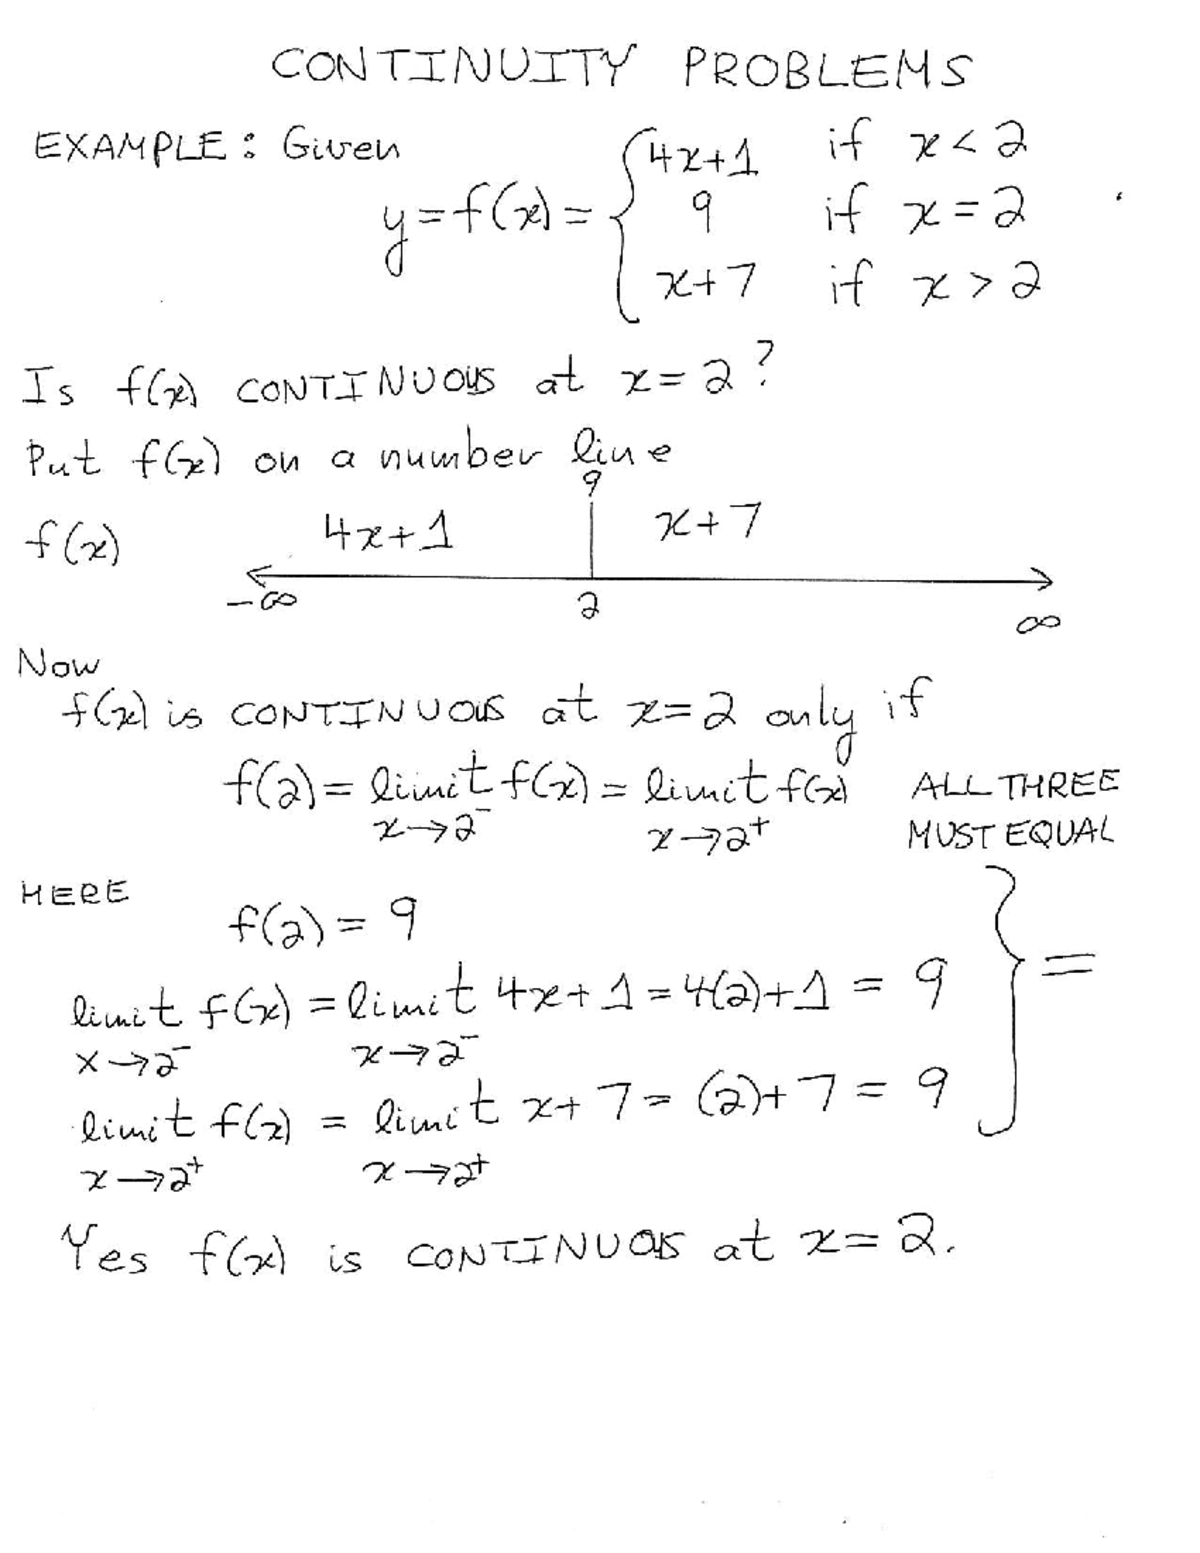 CONTINUITY PROBLEMS
EXAMPLE: Given
y=f(x)= { 4x+1 if x<2
9 if x=2
x+7 if x>2
Is f(x) CONTINUOUS at x=2?
Put f(x) on a number line
9
f(x) 4x+1 x+7
-∞ 2 ∞
Now
f(x) is CONTINUOUS at x=2 only if
f(2)= limit f(x) = limit f(x) ALL THREE
x→2⁻ x→2⁺ MUST EQUAL
HERE
f(2)= 9
limit f(x) = limit 4x+1=4(2)+1 = 9 } =
x→2⁻ x→2⁻
limit f(x) = limit x+7= (2)+7 = 9
x→2⁺ x→2⁺
Yes f(x) is CONTINUOUS at x=2.